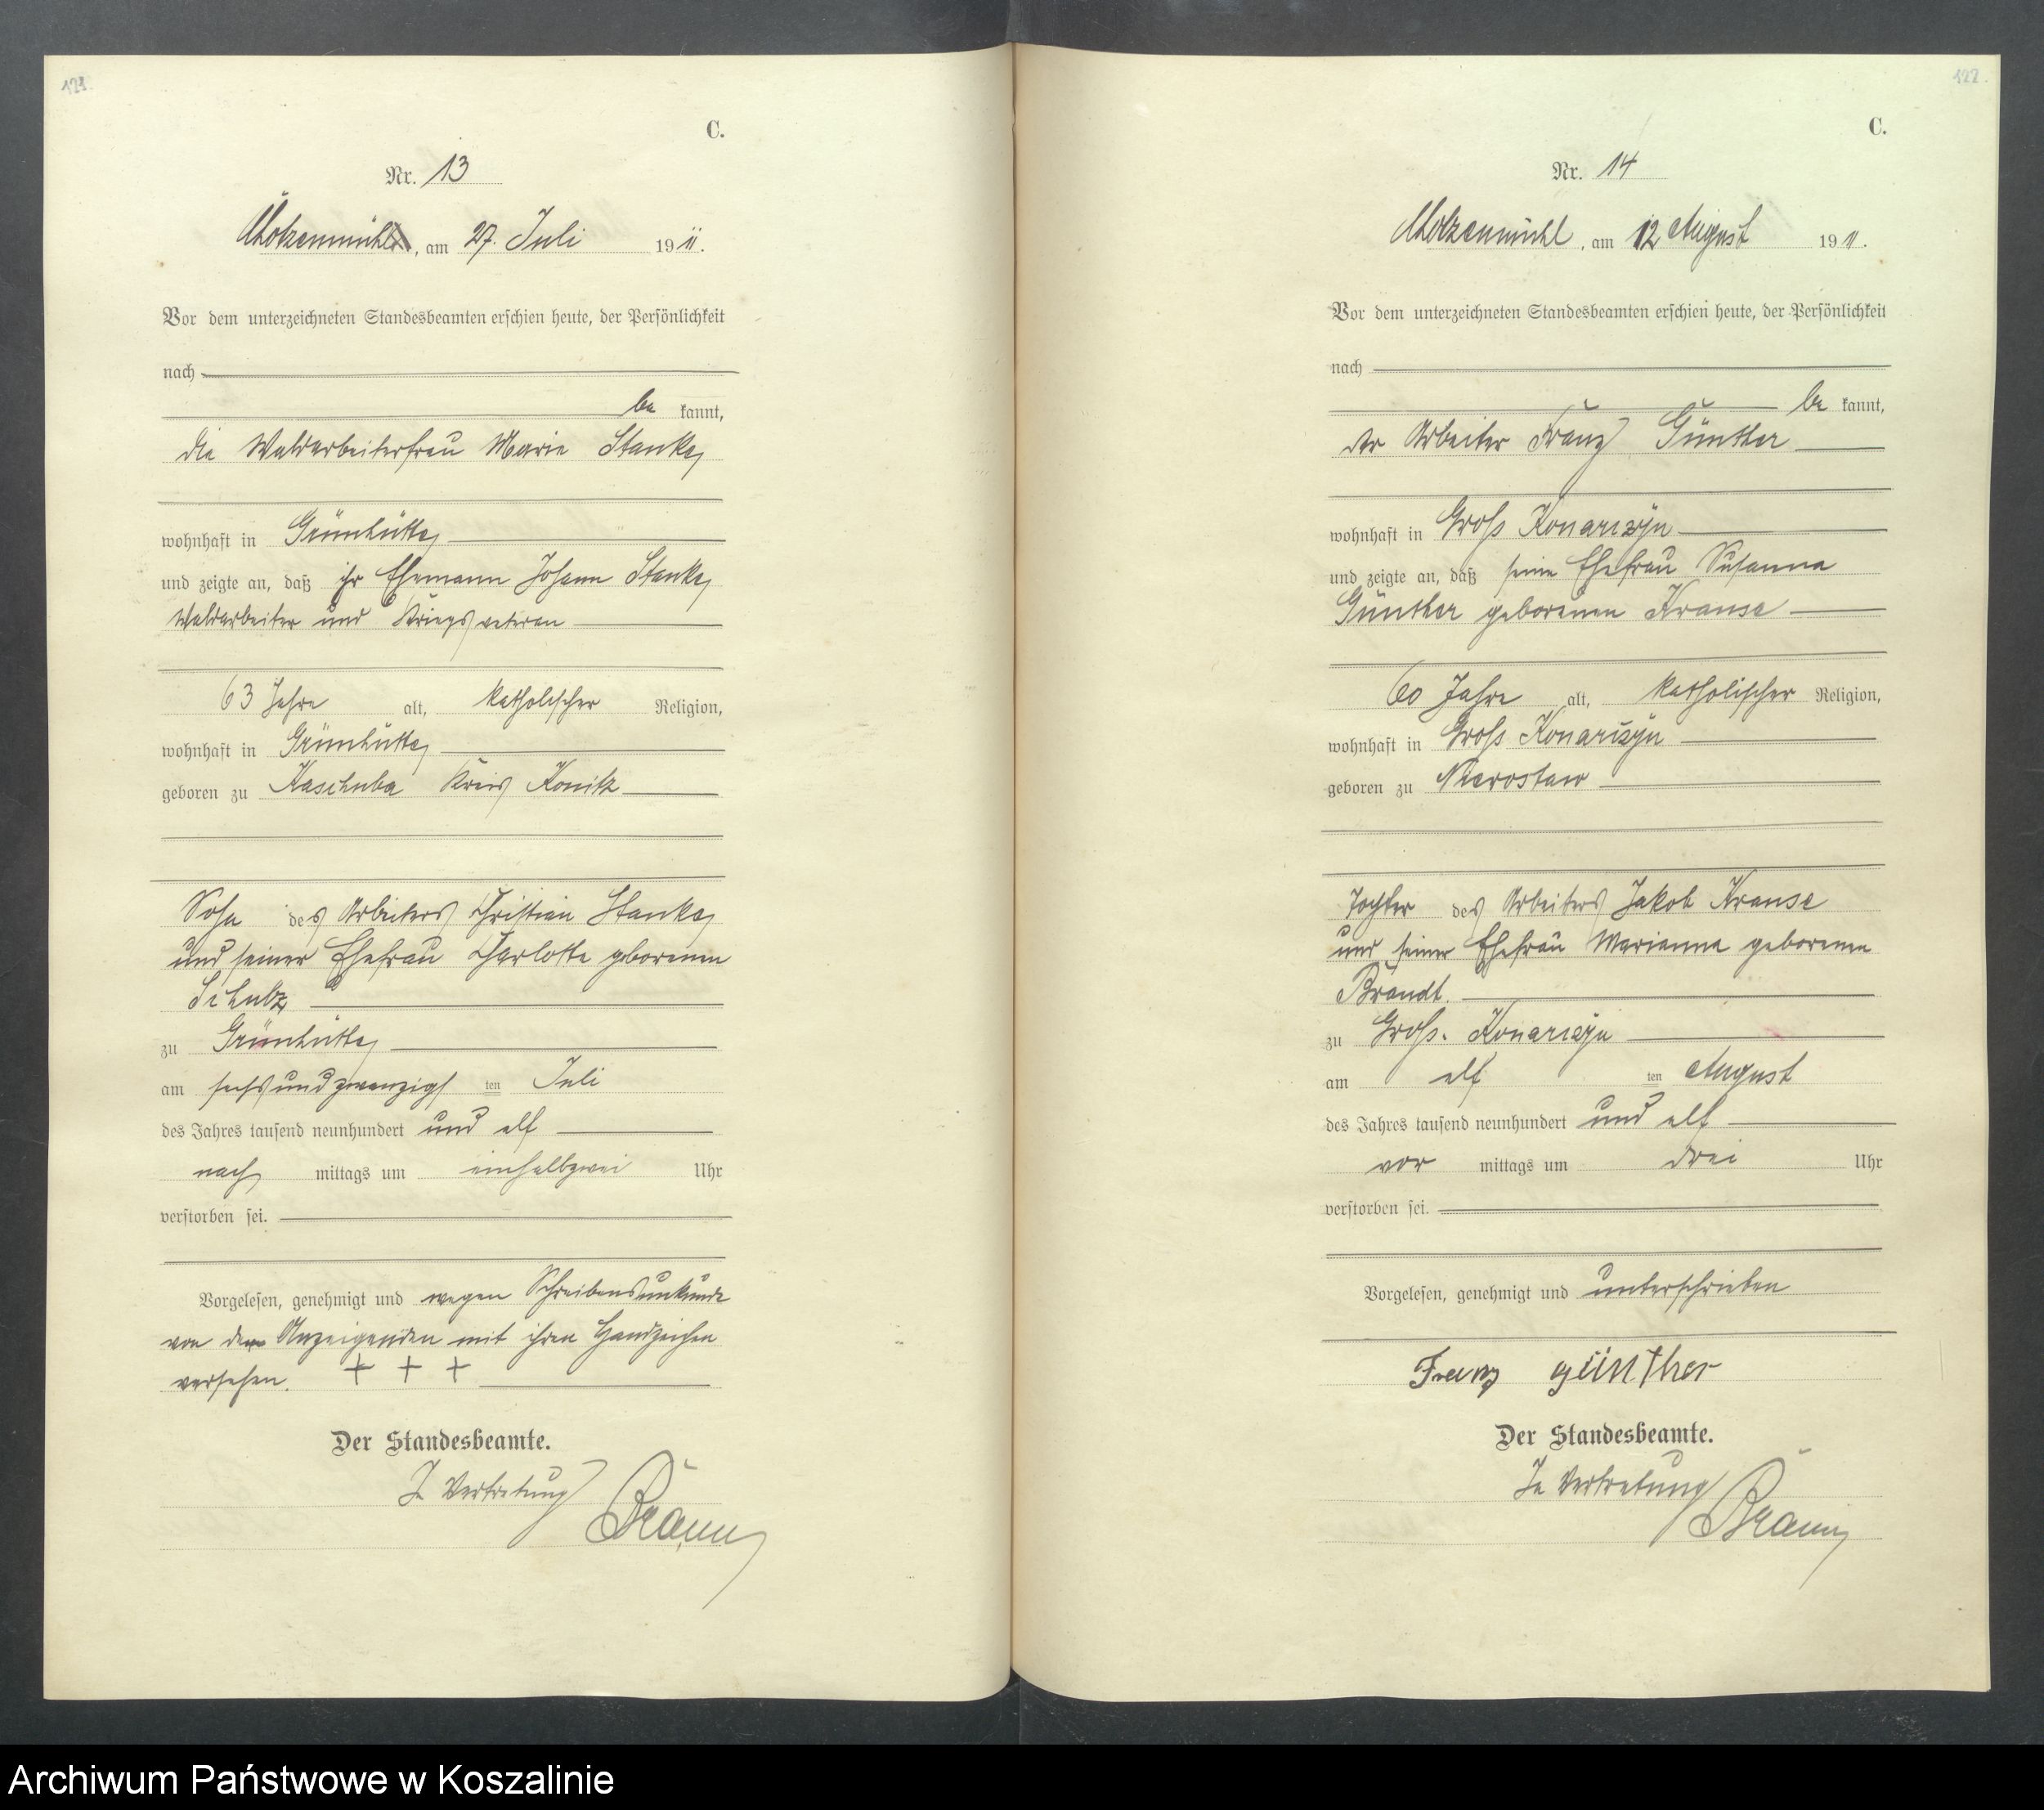 121.
C.
Nr. 13
Chotzenmühl, am 27. Juli 1911.
Vor dem unterzeichneten Standesbeamten erschien heute, der Persönlichkeit
nach
be kannt,
die Waldarbeiterfrau Marie Stanke,
wohnhaft in Grünhütte,
und zeigte an, daß ihr Ehemann Johann Stanke,
Waldarbeiter und Kriegsveteran
63 Jahre alt, katholischer Religion,
wohnhaft in Grünhütte,
geboren zu Kaschuba Kreis Konitz
Sohn des Arbeiters Christian Stanke,
und seiner Ehefrau Charlotte geborenen
Schulz
zu Grünhütte,
am sechsundzwanzigs ten Juli
des Jahres tausend neunhundert und elf
nach mittags um einhalbzwei Uhr
verstorben sei.
Vorgelesen, genehmigt und wegen Schreibensunkunde
von der Anzeigenden mit ihren Handzeichen
versehen. + + +
Der Standesbeamte.
In Vertretung
Braun
122.
C.
Nr. 14
Chotzenmühl, am 12 August 1911.
Vor dem unterzeichneten Standesbeamten erschien heute, der Persönlichkeit
nach
be kannt,
der Arbeiter Franz Günther
wohnhaft in Gross Konarczyn
und zeigte an, daß seine Ehefrau Susanna
Günther geborenen Krause
60 Jahre alt, katholischer Religion,
wohnhaft in Gross Konarczyn
geboren zu Nierostaw
Tochter des Arbeiters Jakob Krause
und seiner Ehefrau Marianna geborenen
Brandt.
zu Gross. Konarczyn
am elf ten August
des Jahres tausend neunhundert und elf
vor mittags um drei Uhr
verstorben sei.
Vorgelesen, genehmigt und unterschrieben
Franz günther
Der Standesbeamte.
In Vertretung
Braun
Archiwum Państwowe w Koszalinie